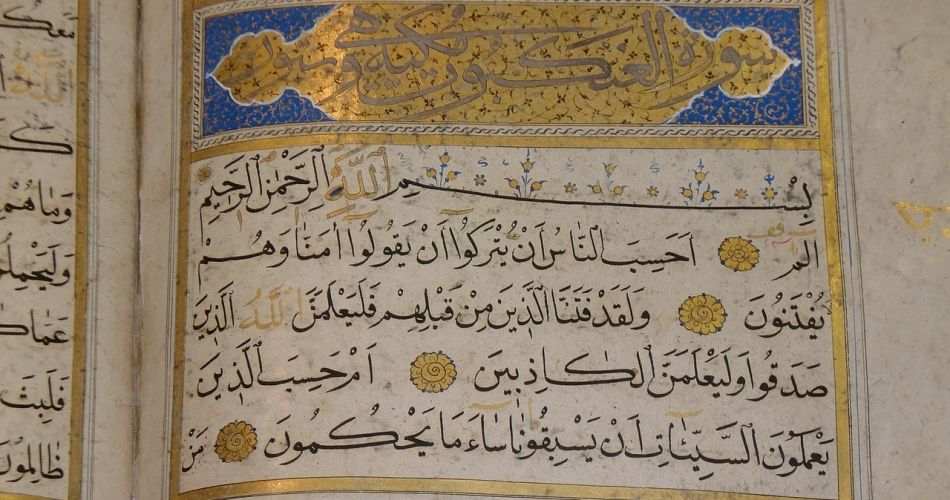 سورة العنكبوت مكية وهي
بِسْمِ اللَّهِ الرَّحْمٰنِ الرَّحِيمِ
الم اَحَسِبَ النَّاسُ اَنْ يُتْرَكُوا اَنْ يَقُولُوا اٰمَنَّا وَهُمْ
يُفْتَنُونَ وَلَقَدْ فَتَنَّا الَّذِينَ مِنْ قَبْلِهِمْ فَلَيَعْلَمَنَّ اللَّهُ الَّذِينَ
صَدَقُوا وَلَيَعْلَمَنَّ الْكَاذِبِينَ اَمْ حَسِبَ الَّذِينَ
يَعْمَلُونَ السَّيِّئَاتِ اَنْ يَسْبِقُونَا سَاءَ مَا يَحْكُمُونَ مَنْ
معك
اللَّهُ
وَمَا هُمْ
وَلَيَحْمِلُ
عَمَّا كَ
فَلَبِثَ
ظَالِمُونَ